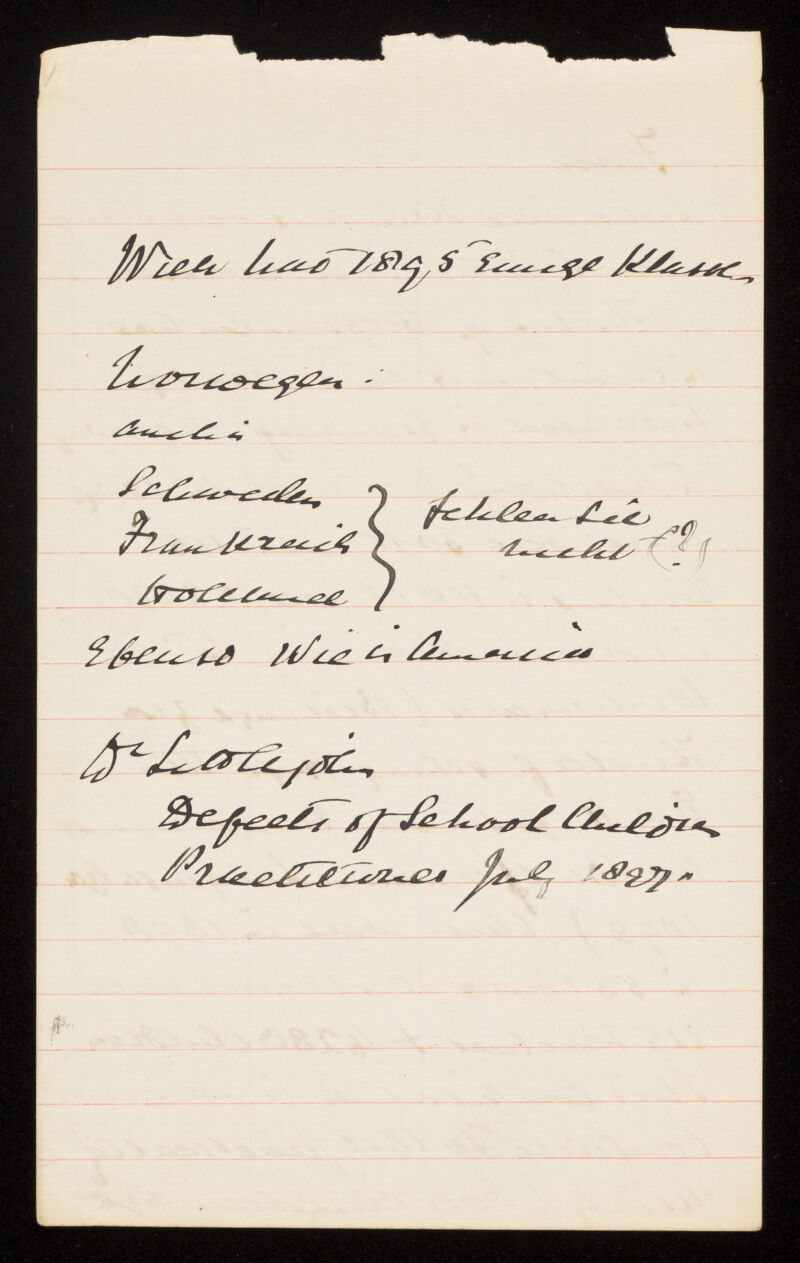 Wien hat 1895 Einige Klassen
Norwegen:
auch in
Schweden
Frankreich
Holland
} fehlen Sie
nicht (?)
Ebenso wie in America
Dr Littlejohn
Defects of School Children
Practitioner July 1897.